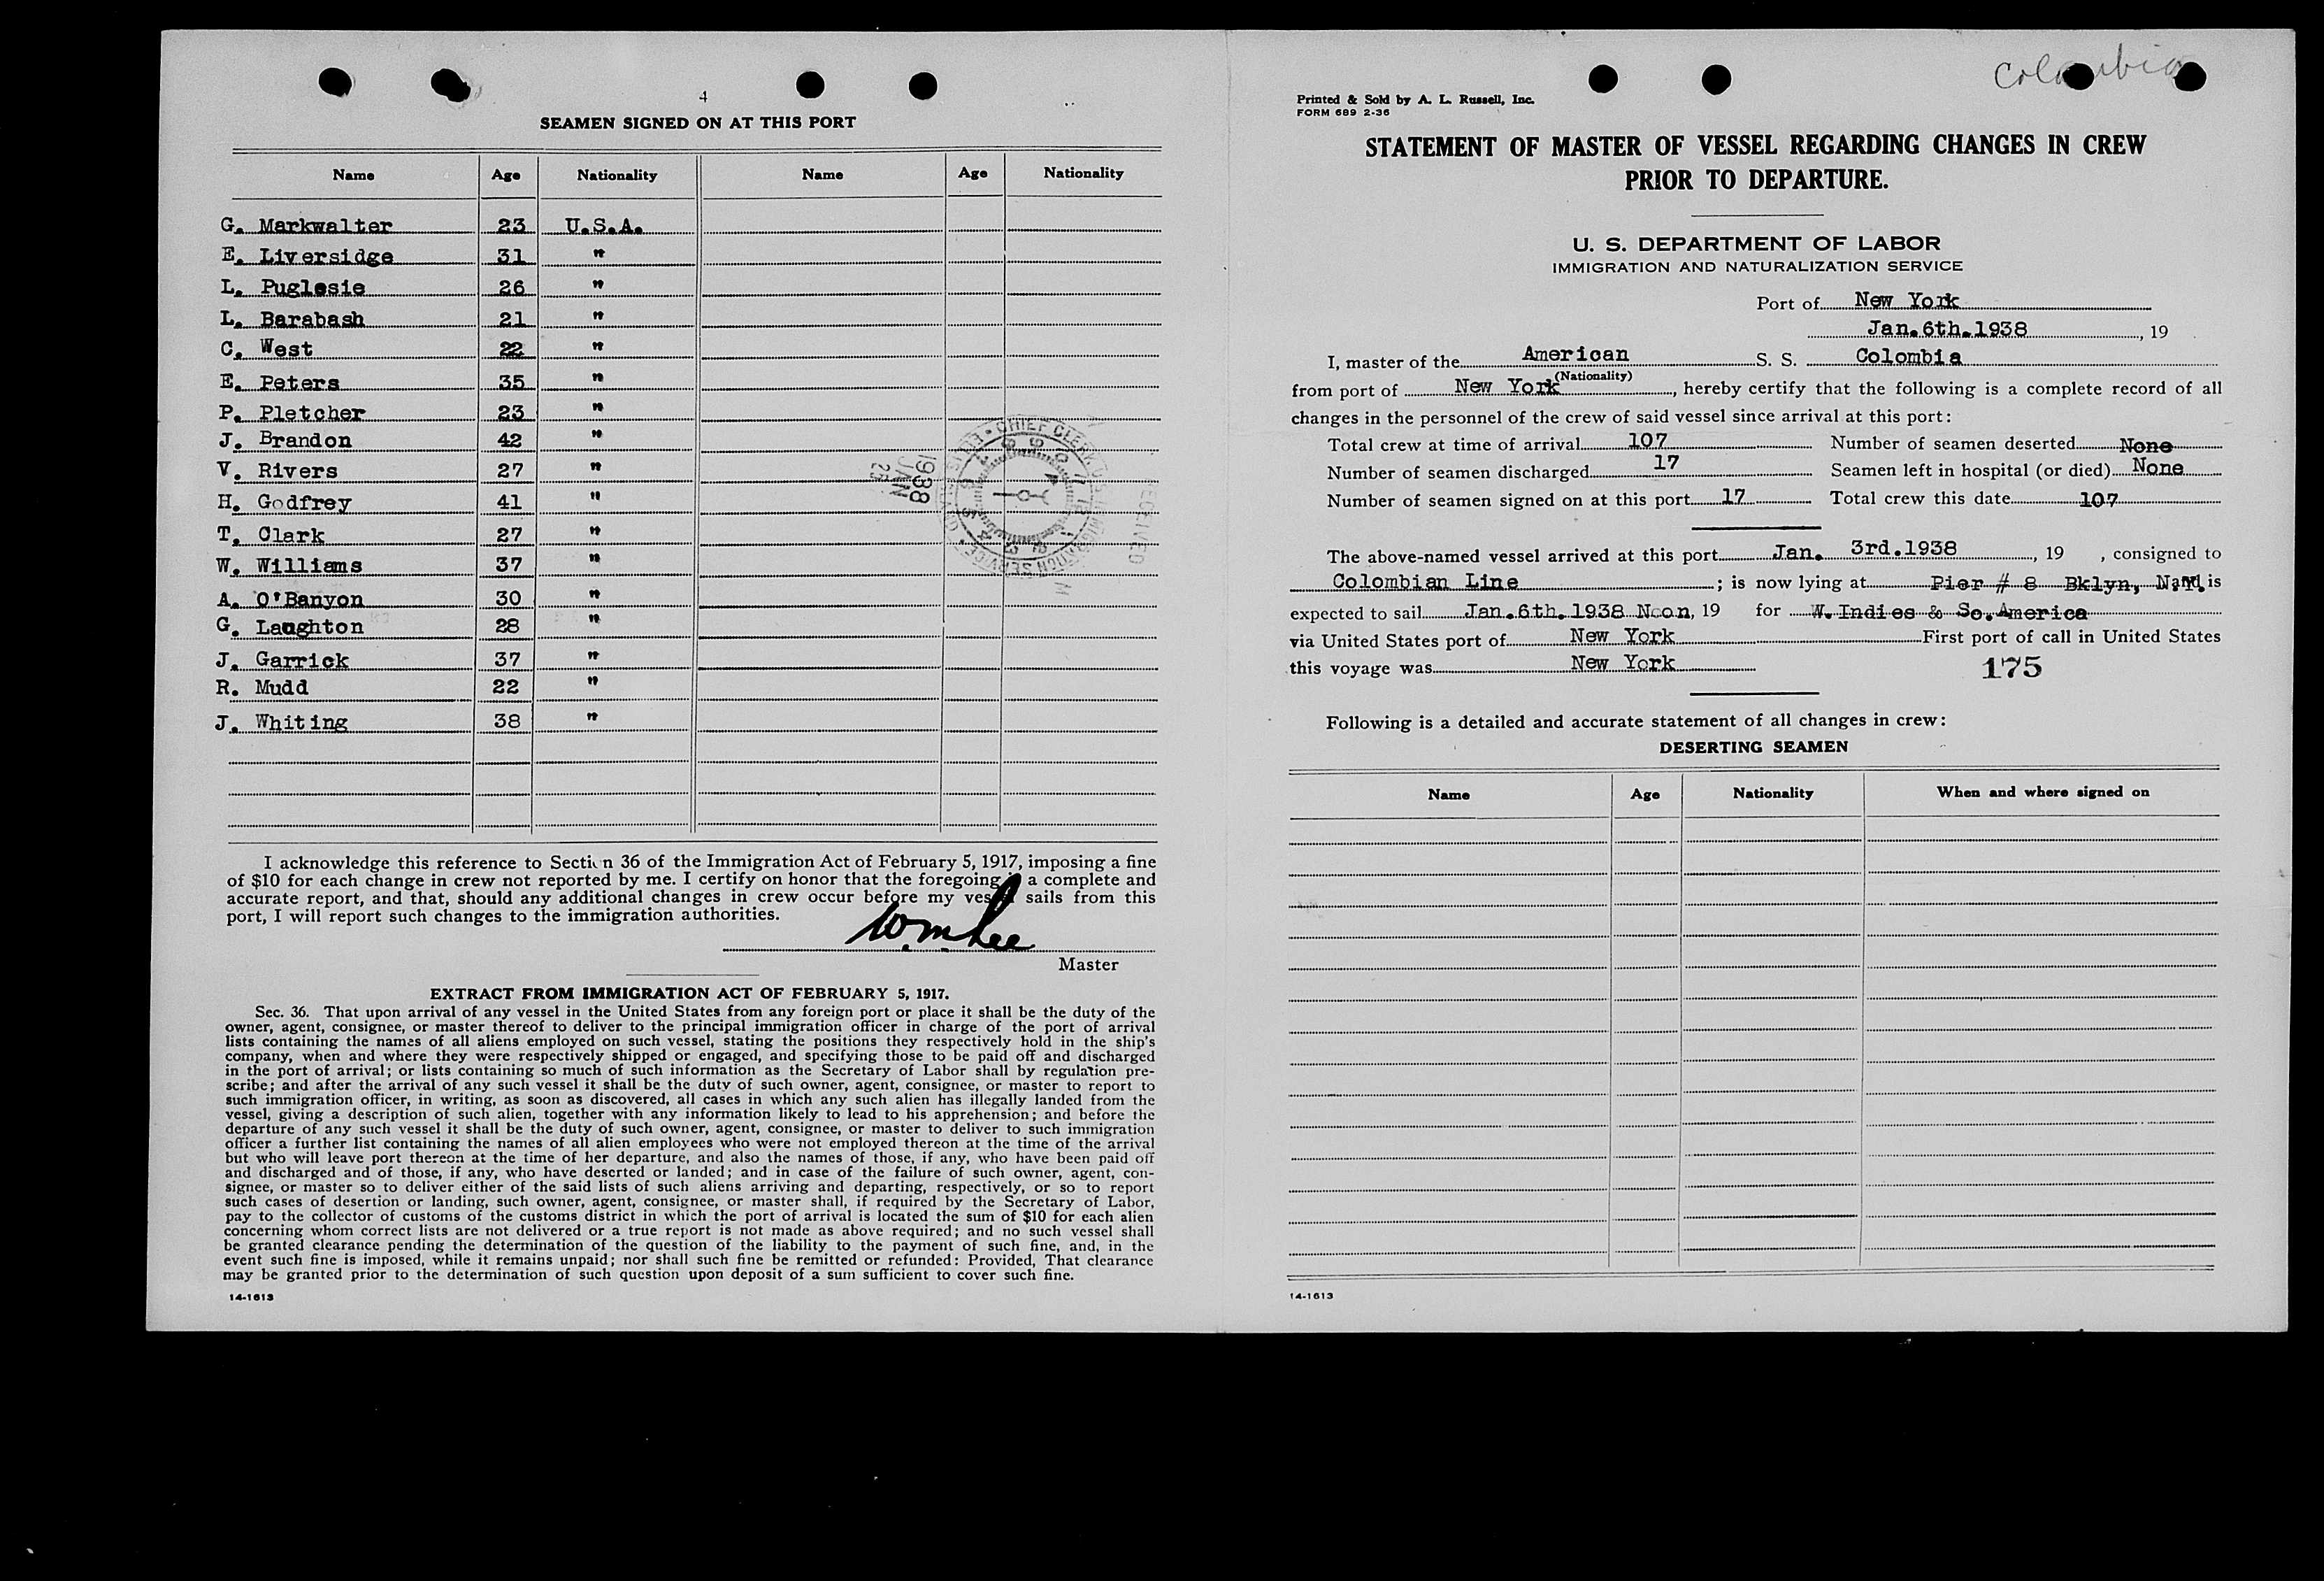 4
SEAMEN SIGNED ON AT THIS PORT
Name Age Nationality Name Age Nationality
G. Markwalter 23 U.S.A.
E. Liversidge 31 "
L. Puglesie 26 "
L. Barabash 21 "
C. West 22 "
E. Peters 35 "
P. Pletcher 23 "
J. Brandon 42 "
V. Rivers 27 "
H. Godfrey 41 "
T. Clark 27 "
W. Williams 37 "
A. O'Banyon 30 "
G. Laughton 28 "
J. Garrick 37 "
R. Mudd 22 "
J. Whiting 38 "
1938
JAN
RECEIVED
CHIEF CLERK
I acknowledge this reference to Section 36 of the Immigration Act of February 5, 1917, imposing a fine
of $10 for each change in crew not reported by me. I certify on honor that the foregoing a complete and
accurate report, and that, should any additional changes in crew occur before my vessel sails from this
port, I will report such changes to the immigration authorities.
Wm Lee
Master
EXTRACT FROM IMMIGRATION ACT OF FEBRUARY 5, 1917.
Sec. 36. That upon arrival of any vessel in the United States from any foreign port or place it shall be the duty of the
owner, agent, consignee, or master thereof to deliver to the principal immigration officer in charge of the port of arrival
lists containing the names of all aliens employed on such vessel, stating the positions they respectively hold in the ship's
company, when and where they were respectively shipped or engaged, and specifying those to be paid off and discharged
in the port of arrival; or lists containing so much of such information as the Secretary of Labor shall by regulation pre-
scribe; and after the arrival of any such vessel it shall be the duty of such owner, agent, consignee, or master to report to
such immigration officer, in writing, as soon as discovered, all cases in which any such alien has illegally landed from the
vessel, giving a description of such alien, together with any information likely to lead to his apprehension; and before the
departure of any such vessel it shall be the duty of such owner, agent, consignee, or master to deliver to such immigration
officer a further list containing the names of all alien employees who were not employed thereon at the time of the arrival
but who will leave port thereon at the time of her departure, and also the names of those, if any, who have been paid off
and discharged and of those, if any, who have deserted or landed; and in case of the failure of such owner, agent, con-
signee, or master so to deliver either of the said lists of such aliens arriving and departing, respectively, or so to report
such cases of desertion or landing, such owner, agent, consignee, or master shall, if required by the Secretary of Labor,
pay to the collector of customs of the customs district in which the port of arrival is located the sum of $10 for each alien
concerning whom correct lists are not delivered or a true report is not made as above required; and no such vessel shall
be granted clearance pending the determination of the question of the liability to the payment of such fine, and, in the
event such fine is imposed, while it remains unpaid; nor shall such fine be remitted or refunded: Provided, That clearance
may be granted prior to the determination of such question upon deposit of a sum sufficient to cover such fine.
14-1613
Colombia
Printed & Sold by A. L. Russell, Inc.
FORM 689 2-36
STATEMENT OF MASTER OF VESSEL REGARDING CHANGES IN CREW
PRIOR TO DEPARTURE.
U. S. DEPARTMENT OF LABOR
IMMIGRATION AND NATURALIZATION SERVICE
Port of New York
Jan.6th.1938, 19
I, master of the American S. S. Colombia
(Nationality)
from port of New York, hereby certify that the following is a complete record of all
changes in the personnel of the crew of said vessel since arrival at this port:
Total crew at time of arrival 107 Number of seamen deserted None
Number of seamen discharged 17 Seamen left in hospital (or died) None
Number of seamen signed on at this port 17 Total crew this date 107
The above-named vessel arrived at this port Jan. 3rd.1938, 19 , consigned to
Colombian Line; is now lying at Pier # 8 Bklyn, N.Y. is
expected to sail Jan.6th.1938 Noon, 19 for W.Indies & So.America
via United States port of New York First port of call in United States
this voyage was New York
175
Following is a detailed and accurate statement of all changes in crew:
DESERTING SEAMEN
Name Age Nationality When and where signed on
14-1613